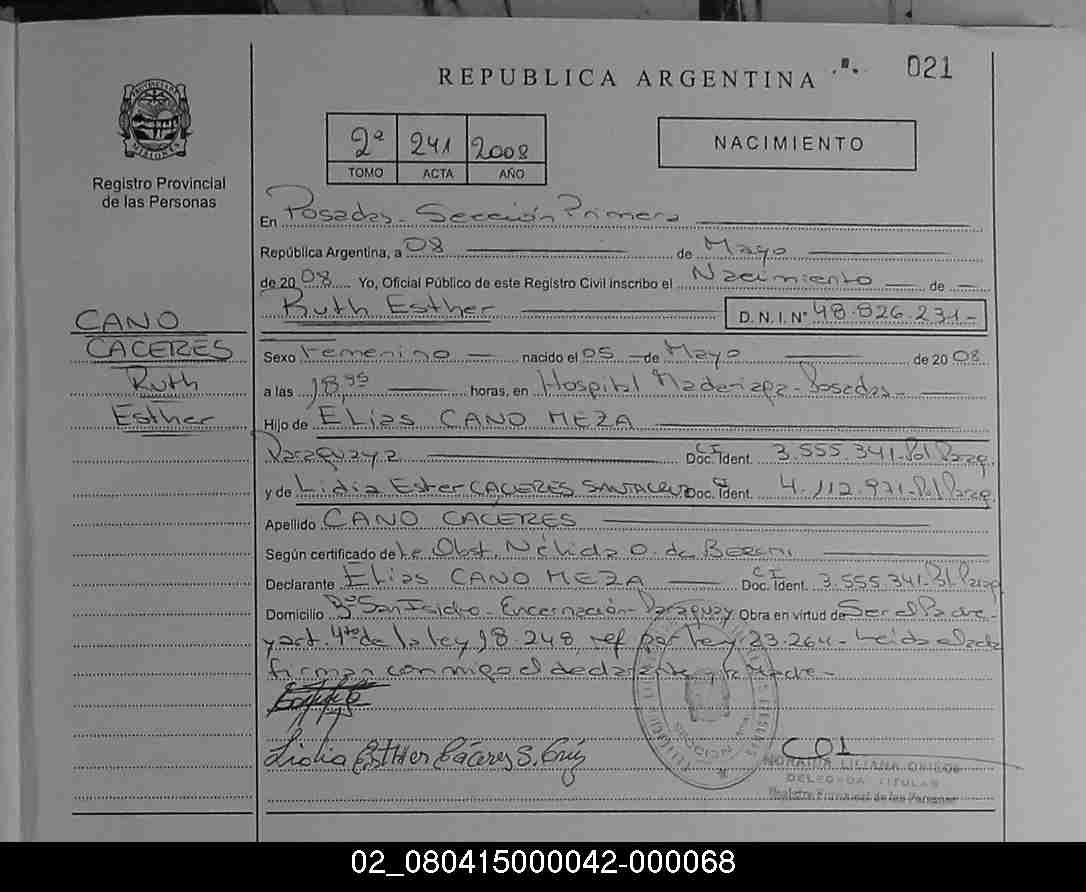 021
REPUBLICA ARGENTINA
PROVINCIA DE MISIONES
Registro Provincial
de las Personas
2ª 241 2008
TOMO ACTA AÑO
NACIMIENTO
En Posadas - Sección Primera
República Argentina, a 08 de Mayo
de 2008 Yo, Oficial Público de este Registro Civil inscribo el Nacimiento de
Ruth Esther D. N. I. Nº 48.826.231-
CANO
CACERES
Ruth
Esther
Sexo Femenino nacido el 05 de Mayo de 2008
a las horas, en Hospital Madariaga - Posadas -
Hijo de Elias CANO MEZA
Paraguaya CI Doc. Ident. 3.555.341-Pol Parag.
y de Lidia Ester CACERES SANTACRUZ Doc. Ident. 4.112.971-Pol Parag
Apellido CANO CACERES
Según certificado de La Obst. Nélida O. de
Declarante Elias CANO MEZA CI Doc. Ident. 3.555.341-Pol Parag
Domicilio Bº San Isidro - Encarnación - Paraguay Obra en virtud de Ser el Padre -
y art. 4to de la ley 18.248, ref por ley 23.264 - Leida el acta
firman conmigo el declarante y la Madre -
Lidia Esther Cáceres S. Cruz
LILIANA
DELEGADA TITULAR
Registro Provincial de las Personas
02_080415000042-000068